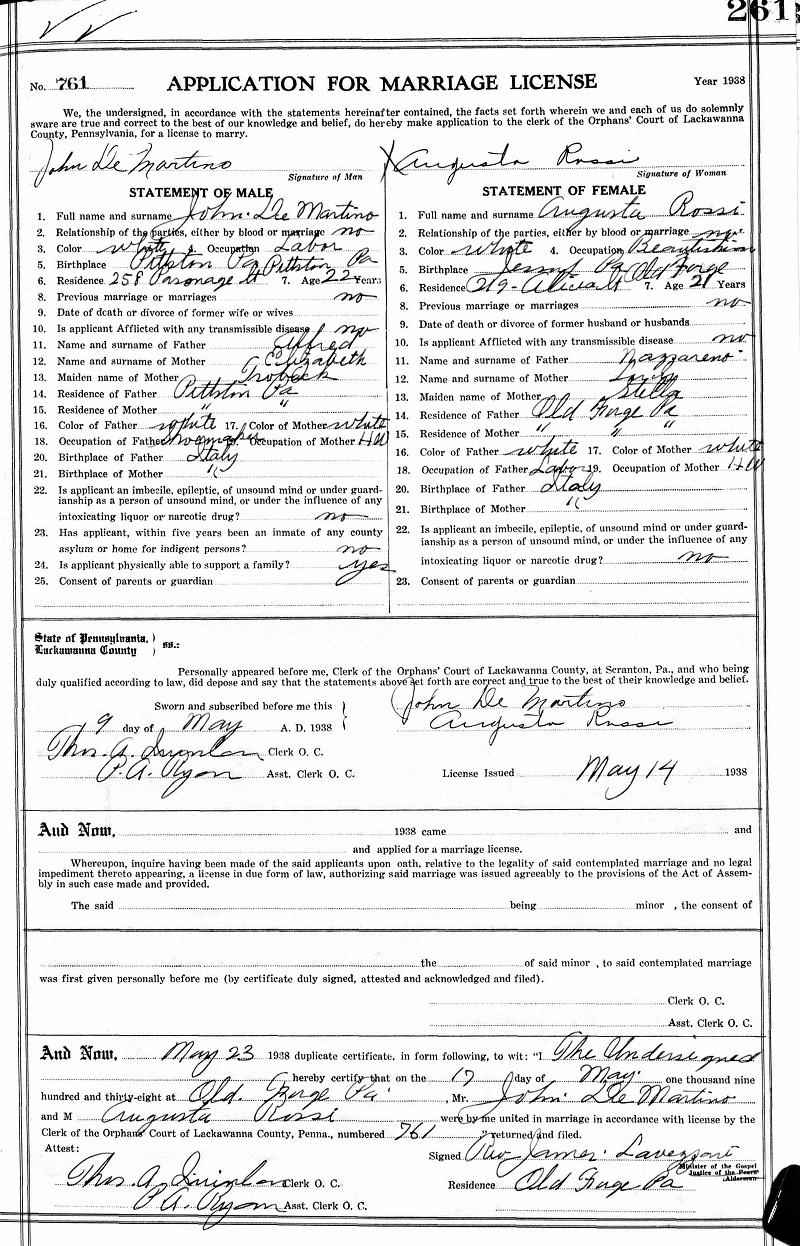 261
No. 761 APPLICATION FOR MARRIAGE LICENSE Year 1938
We, the undersigned, in accordance with the statements hereinafter contained, the facts set forth wherein we and each of us do solemnly
sware are true and correct to the best of our knowledge and belief, do hereby make application to the clerk of the Orphans' Court of Lackawanna
County, Pennsylvania, for a license to marry.
John De Martino Augusta Rossi
Signature of Man Signature of Woman
STATEMENT OF MALE
1. Full name and surname John De Martino
2. Relationship of the parties, either by blood or marriage no
3. Color white 4. Occupation Labor
5. Birthplace Pittston Pa Pittston Pa
6. Residence 258 Parsonage St 7. Age 22 Years
8. Previous marriage or marriages no
9. Date of death or divorce of former wife or wives
10. Is applicant Afflicted with any transmissible disease no
11. Name and surname of Father Alfred
12. Name and surname of Mother Elizabeth
13. Maiden name of Mother
14. Residence of Father Pittston Pa
15. Residence of Mother " "
16. Color of Father white 17. Color of Mother white
18. Occupation of Father Occupation of Mother HW
20. Birthplace of Father Italy
21. Birthplace of Mother "
22. Is applicant an imbecile, epileptic, of unsound mind or under guard-
ianship as a person of unsound mind, or under the influence of any
intoxicating liquor or narcotic drug? no
23. Has applicant, within five years been an inmate of any county
asylum or home for indigent persons? no
24. Is applicant physically able to support a family? yes
25. Consent of parents or guardian
STATEMENT OF FEMALE
1. Full name and surname Augusta Rossi
2. Relationship of the parties, either by blood or marriage no
3. Color White 4. Occupation Beautician
5. Birthplace Jessup Pa Old Forge
6. Residence 219- Alicia St 7. Age 21 Years
8. Previous marriage or marriages no
9. Date of death or divorce of former husband or husbands
10. Is applicant Afflicted with any transmissible disease no
11. Name and surname of Father Nazzareno
12. Name and surname of Mother
13. Maiden name of Mother Stella
14. Residence of Father Old Forge Pa
15. Residence of Mother " " "
16. Color of Father white 17. Color of Mother white
18. Occupation of Father Labor 19. Occupation of Mother HW
20. Birthplace of Father Italy
21. Birthplace of Mother "
22. Is applicant an imbecile, epileptic, of unsound mind or under guard-
ianship as a person of unsound mind, or under the influence of any
intoxicating liquor or narcotic drug? no
23. Consent of parents or guardian
State of Pennsylvania,
Lackawanna County ss.:
Personally appeared before me, Clerk of the Orphans' Court of Lackawanna County, at Scranton, Pa., and who being
duly qualified according to law, did depose and say that the statements above set forth are correct and true to the best of their knowledge and belief.
Sworn and subscribed before me this John De Martino
9 day of May A. D. 1938 Augusta Rossi
Thos. A. Quinlan Clerk O. C.
P. A. Ryan Asst. Clerk O. C. License Issued May 14 1938
And Now, 1938 came and
and applied for a marriage license.
Whereupon, inquire having been made of the said applicants upon oath, relative to the legality of said contemplated marriage and no legal
impediment thereto appearing, a license in due form of law, authorizing said marriage was issued agreeably to the provisions of the Act of Assem-
bly in such case made and provided.
The said being minor , the consent of
the of said minor , to said contemplated marriage
was first given personally before me (by certificate duly signed, attested and acknowledged and filed).
Clerk O. C.
Asst. Clerk O. C.
And Now, May 23 1938 duplicate certificate, in form following, to wit: "I The Undersigned
hereby certify that on the 17 day of May one thousand nine
hundred and thirty-eight at Old Forge Pa , Mr. John De Martino
and M Augusta Rossi were by me united in marriage in accordance with license by the
Clerk of the Orphans' Court of Lackawanna County, Penna., numbered 761 " returned and filed.
Attest: Signed Rev James Lavezzani
Minister of the Gospel
Justice of the Peace
Alderman
Thos. A. Quinlan Clerk O. C. Residence Old Forge Pa
P. A. Ryan Asst. Clerk O. C.